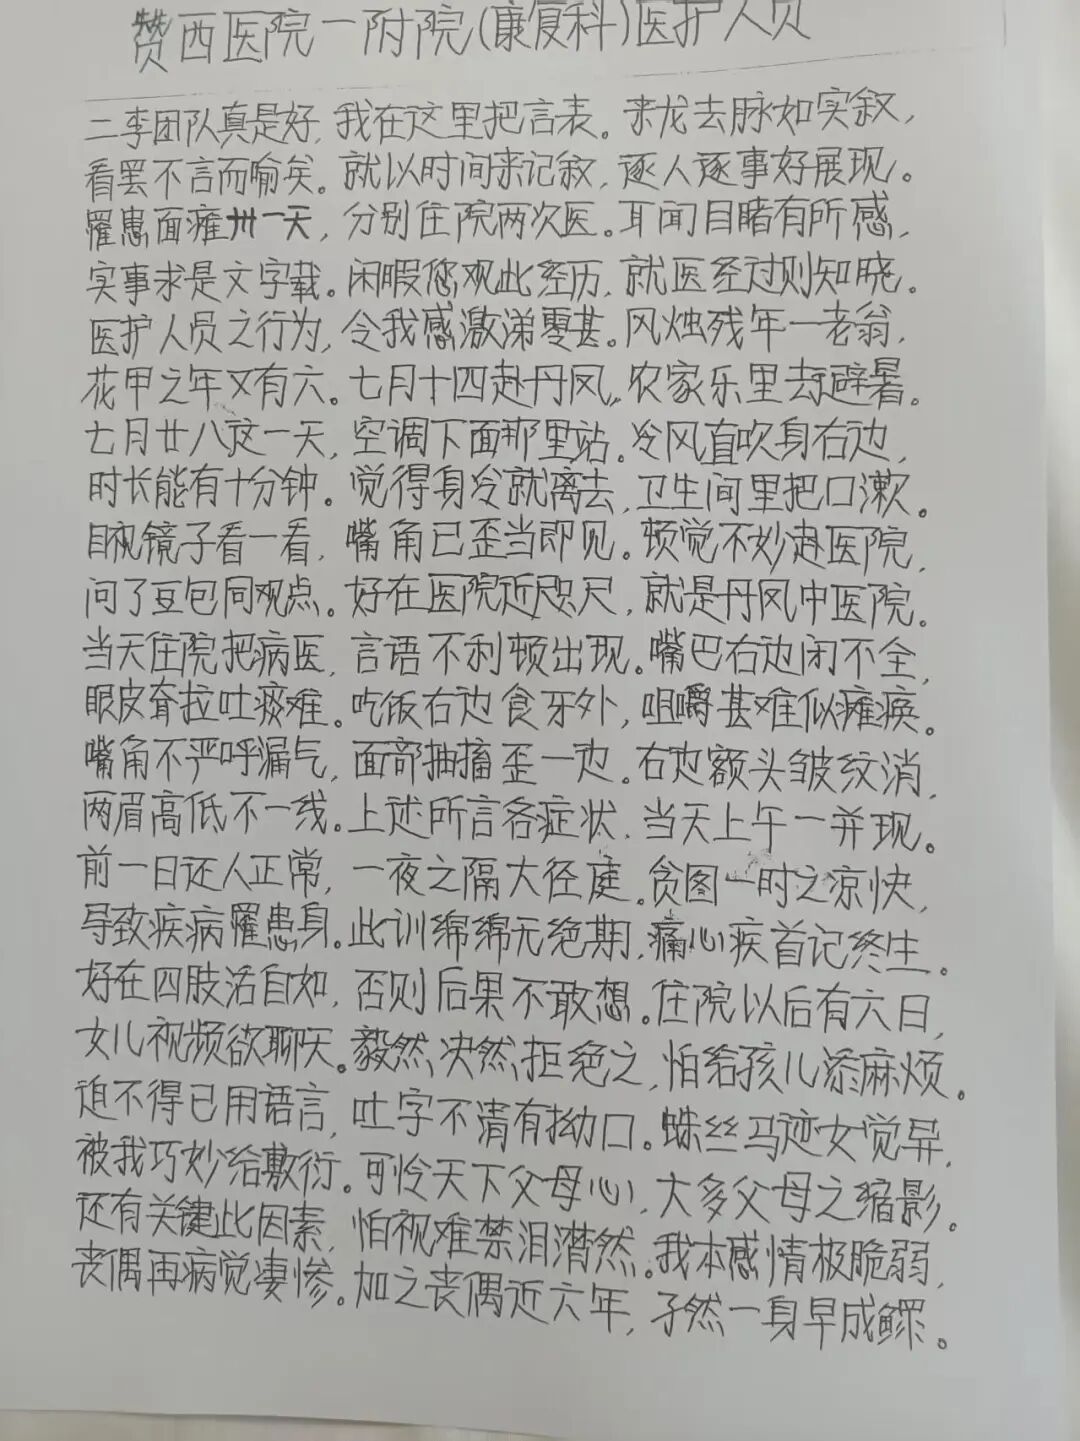 赞西医院一附院(康复科)医护人员
二李团队真是好,我在这里把言表。来龙去脉如实叙,
看罢不言而喻矣。就以时间来记叙,逐人逐事好展现。
罹患面瘫卅一天,分别住院两次医。耳闻目睹有所感,
实事求是文字载。闲暇您观此经历,就医经过则知晓。
医护人员之行为,令我感激涕零甚。风烛残年一老翁,
花甲之年又有六。七月十四赴丹凤,农家乐里去避暑。
七月廿八这一天,空调下面那里站。冷风直吹身右边,
时长能有十分钟。觉得身冷就离去,卫生间里把口漱。
目视镜子看一看,嘴角已歪当即见。顿觉不妙赴医院,
问了豆包同观点。好在医院近咫尺,就是丹凤中医院。
当天住院把病医,言语不利顿出现。嘴巴右边闭不全,
眼皮耷拉吐痰难。吃饭右边食牙外,咀嚼甚难似瘫痪。
嘴角不严呼漏气,面部抽搐歪一边。右边额头皱纹消,
两眉高低不一线。上述所言各症状,当天上午一并现。
前一日还人正常,一夜之隔大径庭。贪图一时之凉快,
导致疾病罹患身。此训绵绵无绝期,痛心疾首记终生。
好在四肢活自如,否则后果不敢想。住院以后有六日,
女儿视频欲聊天。毅然、决然、拒绝之,怕给孩儿添麻烦。
迫不得已用语言,吐字不清有拗口。蛛丝马迹女觉异,
被我巧妙给敷衍。可怜天下父母心,大多父母之缩影。
还有关键此因素,怕视难禁泪潸然。我本感情极脆弱,
丧偶再病觉凄惨。加之丧偶近六年,孑然一身早成鳏。